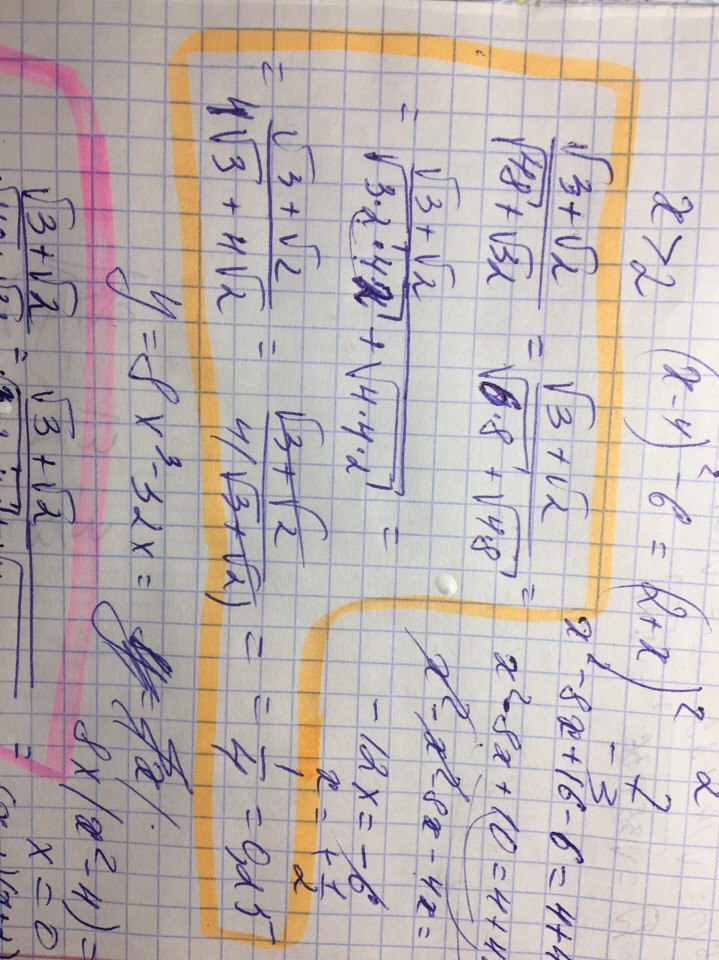 x>2 (x-4)² - 6 = (2+x)² 2
- 7/3
x² - 8x + 16 - 6 = 4 + 4
x² - 8x + 10 = 4 + 4
x² - x² - 8x - 4x =
- 12x = - 6
x = + 1/2
(√3 + √2)/(√48 + √32) = (√3 + √2)/(√6·8 + √4·8) =
= (√3 + √2)/(√3·2·4·2 + √4·4·2) =
= (√3 + √2)/(4√3 + 4√2) = (√3 + √2)/(4(√3 + √2)) = = 1/4 = 0,25
y = 8x³ - 32x =
8x(x² - 4) =
x = 0
(√3 + √2) = (√3 + √2) =